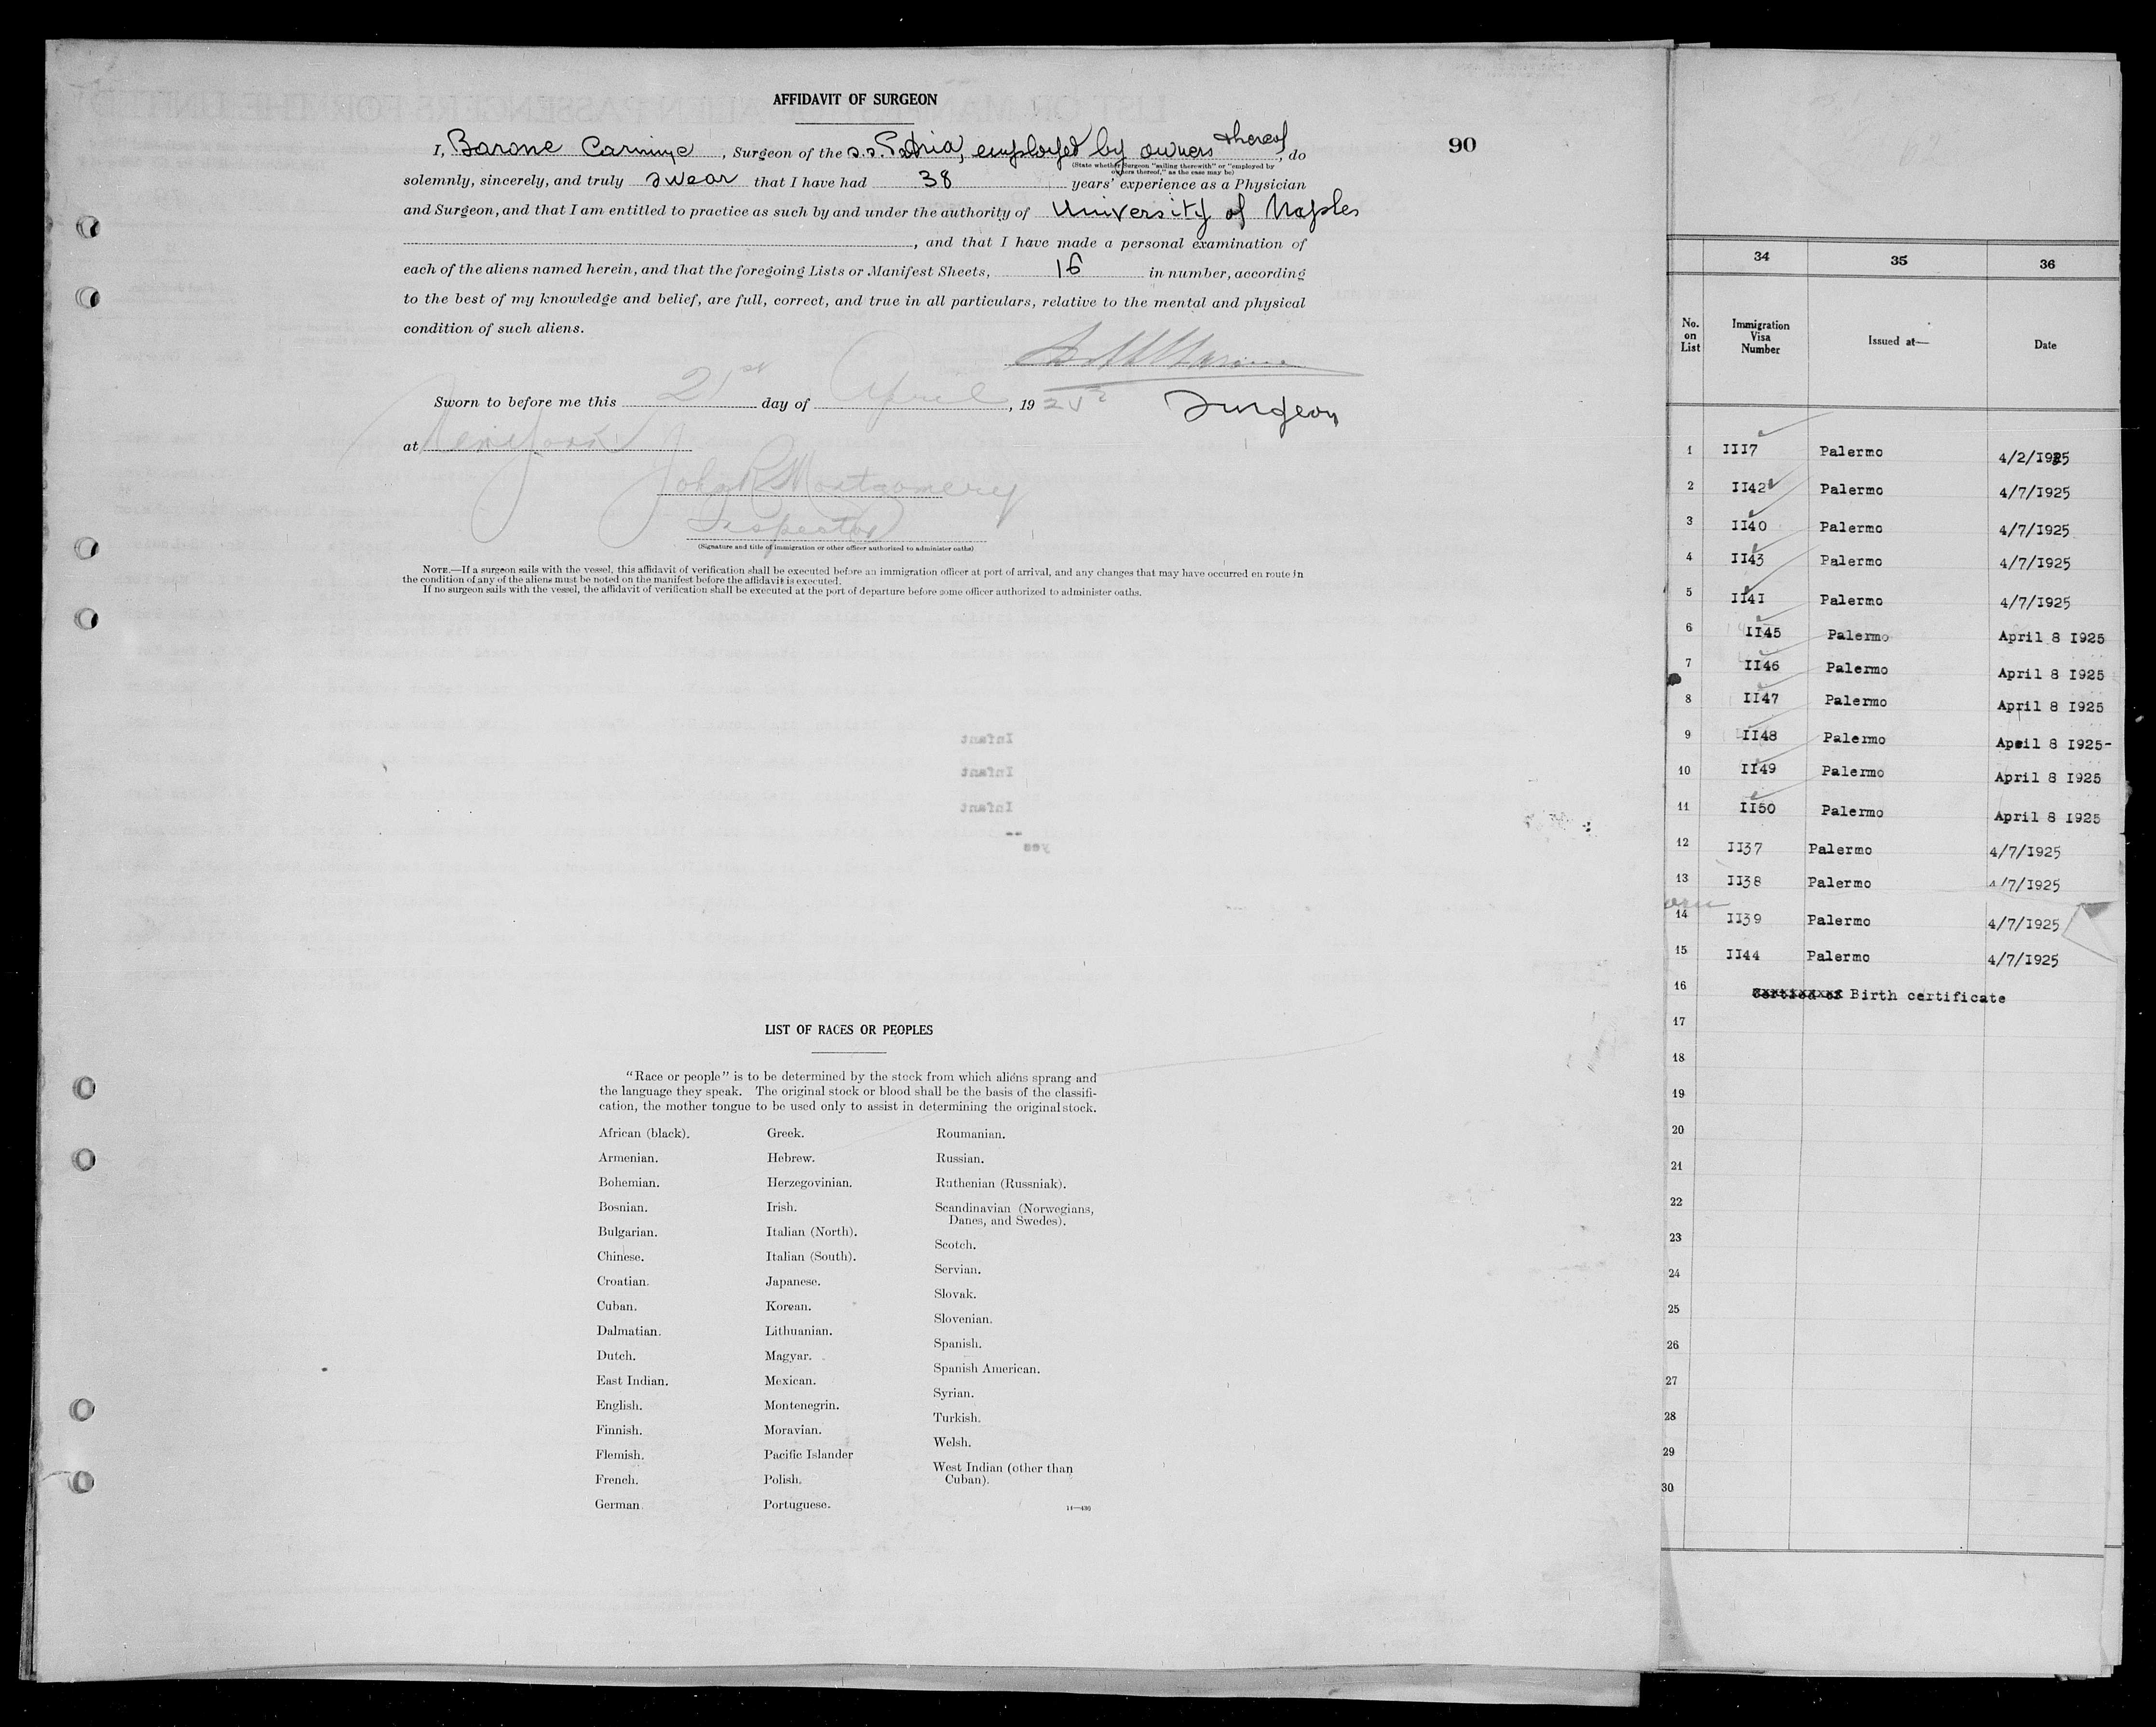 AFFIDAVIT OF SURGEON
90
I, Barone Carmine, Surgeon of the s.s. Patria, employed by owners thereof, do
(State whether Surgeon "sailing therewith" or "employed by
owners thereof," as the case may be)
solemnly, sincerely, and truly swear that I have had 38 years' experience as a Physician
and Surgeon, and that I am entitled to practice as such by and under the authority of University of Naples
, and that I have made a personal examination of
each of the aliens named herein, and that the foregoing Lists or Manifest Sheets, 16 in number, according
to the best of my knowledge and belief, are full, correct, and true in all particulars, relative to the mental and physical
condition of such aliens.
Sworn to before me this 21st day of April, 1925
Surgeon
at New York
John R Montgomery
Inspector
(Signature and title of immigration or other officer authorized to administer oaths)
NOTE.—If a surgeon sails with the vessel, this affidavit of verification shall be executed before an immigration officer at port of arrival, and any changes that may have occurred en route in
the condition of any of the aliens must be noted on the manifest before the affidavit is executed.
If no surgeon sails with the vessel, the affidavit of verification shall be executed at the port of departure before some officer authorized to administer oaths.
Infant
Infant
Infant
--
yes
LIST OF RACES OR PEOPLES
"Race or people" is to be determined by the stock from which aliens sprang and
the language they speak. The original stock or blood shall be the basis of the classifi-
cation, the mother tongue to be used only to assist in determining the original stock.
African (black).
Armenian.
Bohemian.
Bosnian.
Bulgarian.
Chinese.
Croatian.
Cuban.
Dalmatian.
Dutch.
East Indian.
English.
Finnish.
Flemish.
French.
German.
Greek.
Hebrew.
Herzegovinian.
Irish.
Italian (North).
Italian (South).
Japanese.
Korean.
Lithuanian.
Magyar.
Mexican.
Montenegrin.
Moravian.
Pacific Islander
Polish.
Portuguese.
Roumanian.
Russian.
Ruthenian (Russniak).
Scandinavian (Norwegians,
Danes, and Swedes).
Scotch.
Servian.
Slovak.
Slovenian.
Spanish.
Spanish American.
Syrian.
Turkish.
Welsh.
West Indian (other than
Cuban).
14—430
34 35 36
No. on List Immigration Visa Number Issued at— Date
1 III7 Palermo 4/2/1925
2 II42 Palermo 4/7/1925
3 II40 Palermo 4/7/1925
4 II43 Palermo 4/7/1925
5 II41 Palermo 4/7/1925
6 II45 Palermo April 8 1925
7 II46 Palermo April 8 1925
8 II47 Palermo April 8 1925
9 II48 Palermo April 8 1925-
10 II49 Palermo April 8 1925
11 II50 Palermo April 8 1925
12 II37 Palermo 4/7/1925
13 II38 Palermo 4/7/1925
14 II39 Palermo 4/7/1925
15 II44 Palermo 4/7/1925
16 Birth certificate
17
18
19
20
21
22
23
24
25
26
27
28
29
30